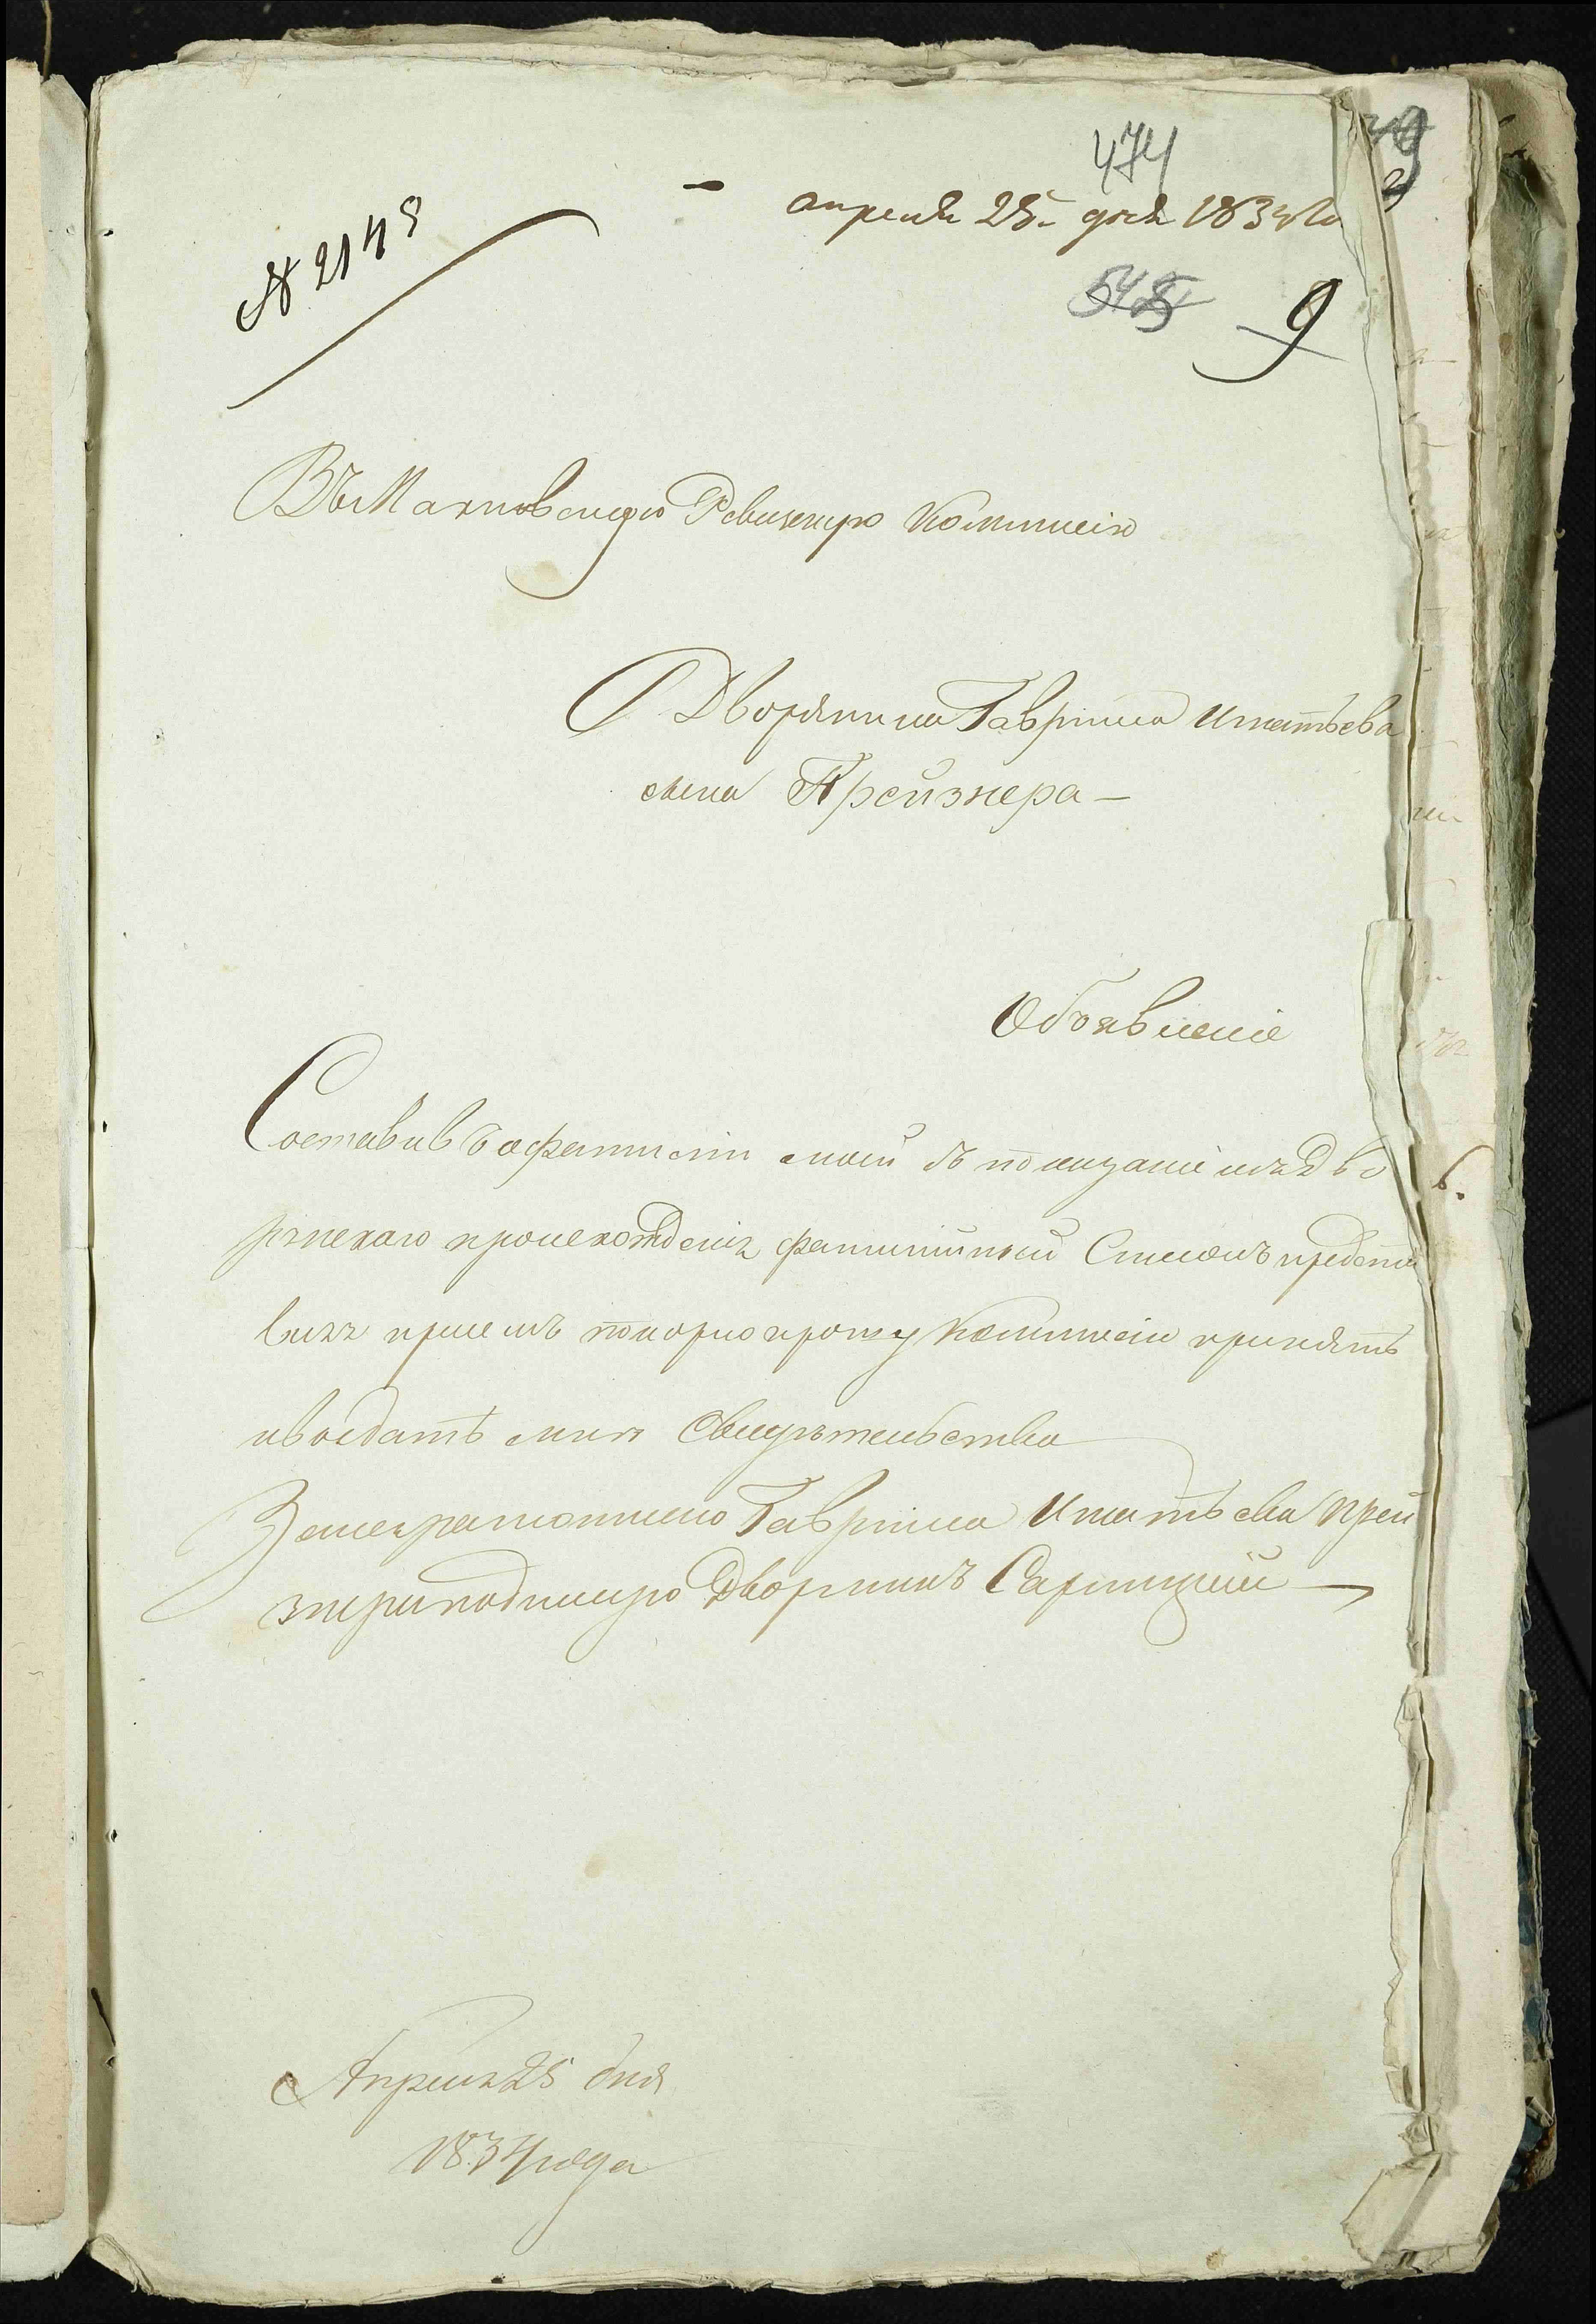 474
апреля 25 дня 1834 го
№ 2145
545
9
Въ Махновскую Ревизскую Коммисію
Дворянина Гавріила Игнатьева
сына Прейзнера —
Объявленіе
Составивъ о фамиліи моей съ показаніемъ Дво
рянскаго происхожденія фамилійный Списокъ предста
вляя при семъ покорно прошу Коммисіи принять
и выдать мнѣ Свидѣтельство
За неграмотнаго Гавріила Игнатьева Прей
знера подпис Дворянинъ
Апреля 25 дня
1834 года